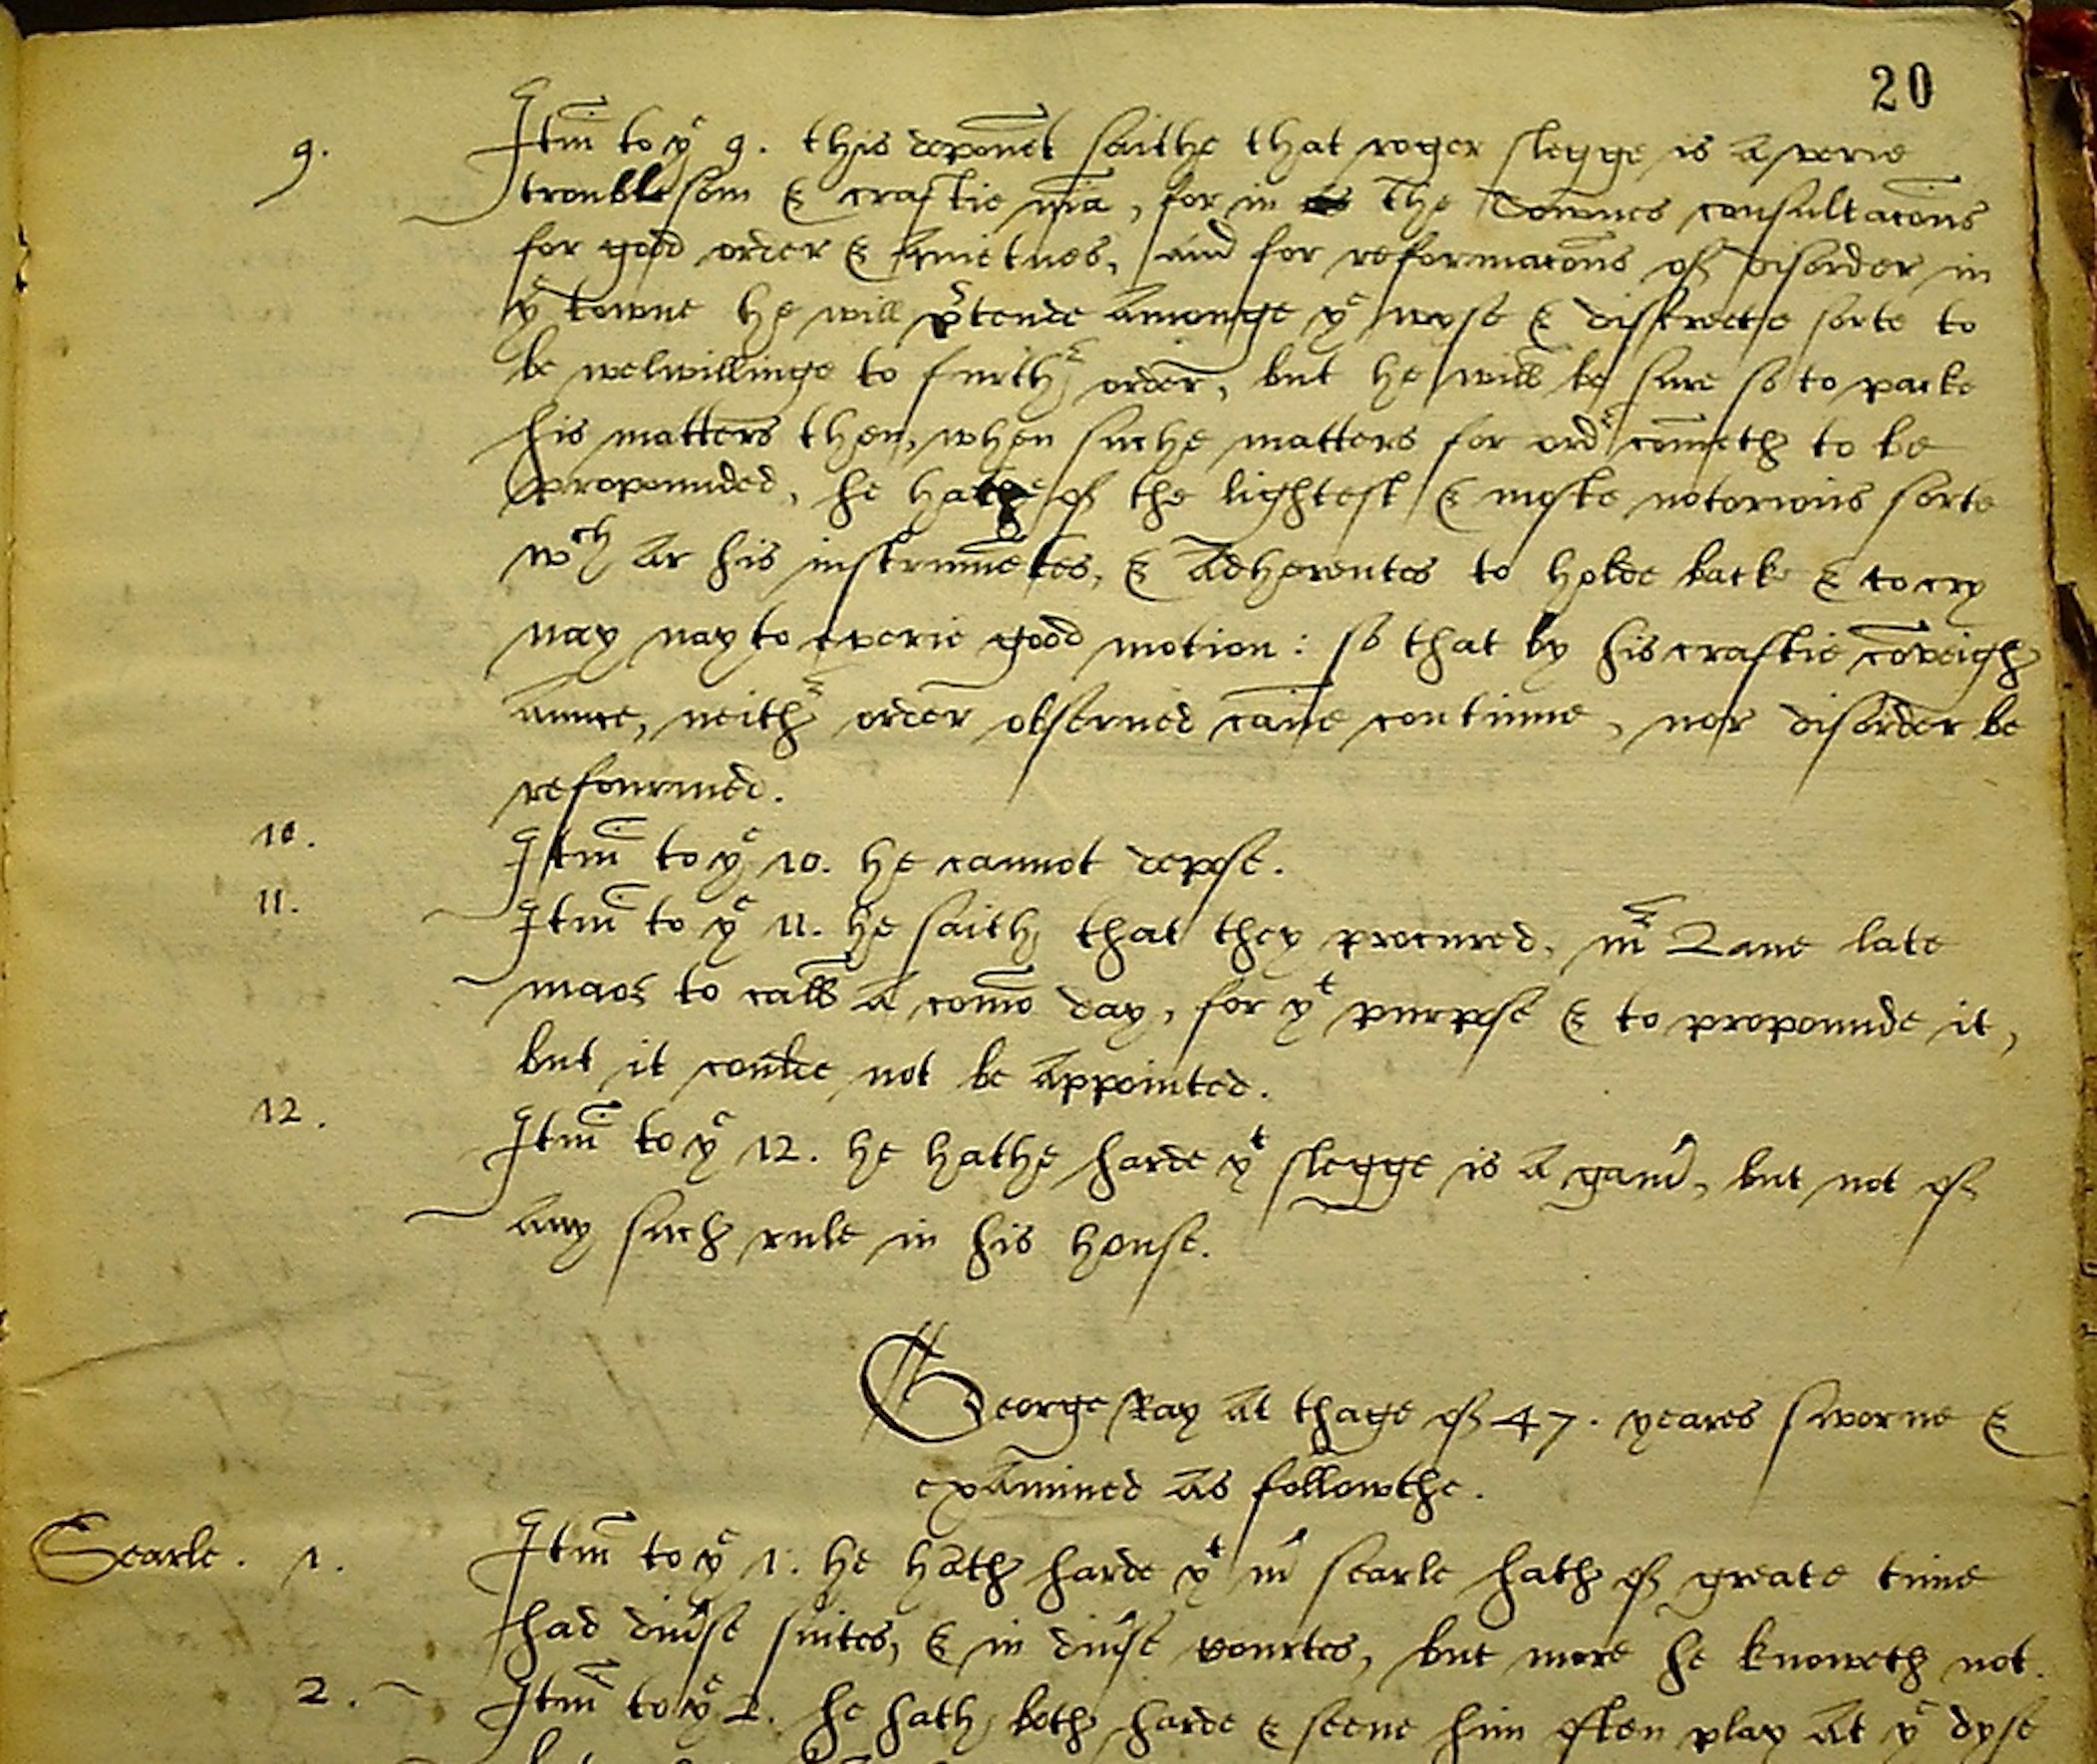 20
9. Itm to ye 9. this deponēt saithe that roger slegge is a verie
troublesom & craftie mā, for in the townes consultacōns
for good order & quietnes, and for reformacōns of disorder in
ye towne he will p̄tende amonge ye wyse & discreete sorte to
be welwillinge to furthr order, but he will be sure so to packe
his matters then, when suche matters for ordr cōmeth to be
propounded, he hathe of the lightest & moste notorious sorte
wch ar his instrumētes, & adherentes to holde backe & to cry
nay nay to everie good motion: so that by his craftie cōveigh
aunce, neithr order observed cane continue, nor disorder be
refourmed.
10. Itm to ye 10. he cannot depose.
11. Itm to ye 11. he saith that they procured, mr Lane late
maor to call a comō day, for yt purpose & to propounde it,
but it coulde not be appointed.
12. Itm to ye 12. he hathe harde yt slegge is a gamr, but not of
any such rule in his house.
George Ray at thage of 47. yeares sworne &
examined as followthe.
Searle. 1. Itm to ye 1. he hath harde yt mr searle hath of greate time
had diu'se suites, & in diu'se courtes, but more he knoweth not.
2. Itm to ye 2. he hath both harde & seene him often play at ye dyse